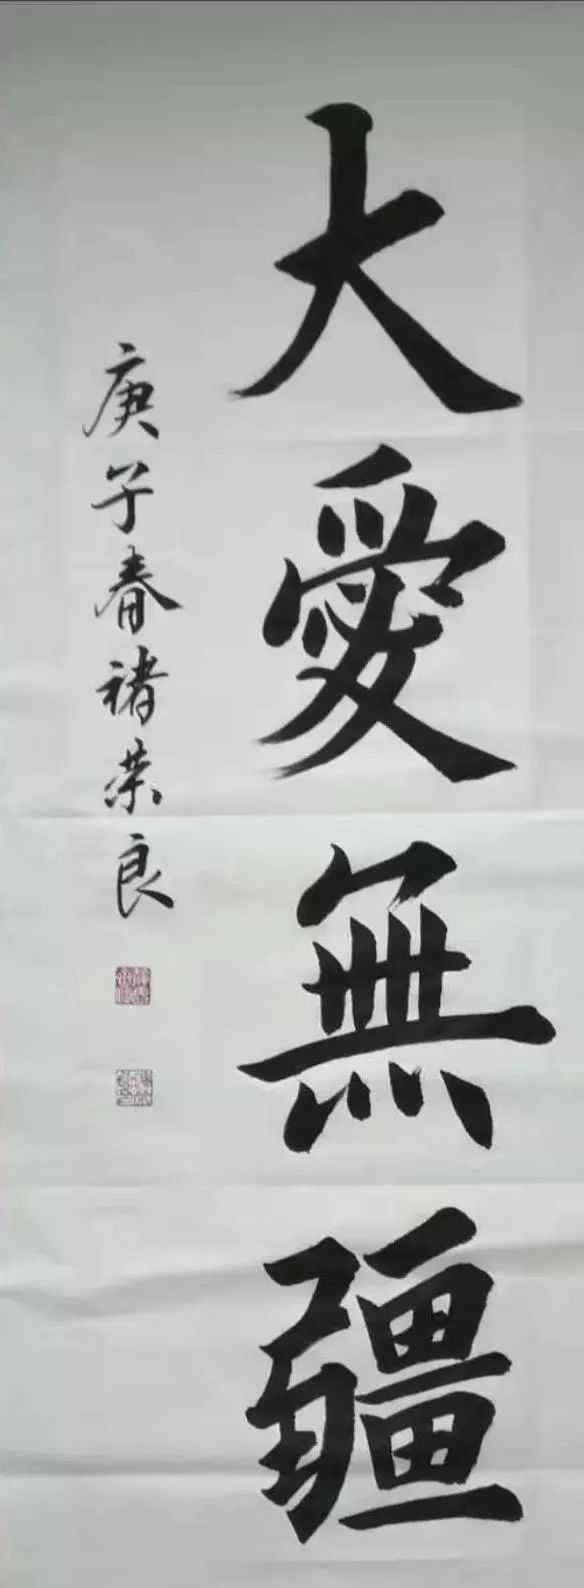 大愛無疆
庚子春褚荣良